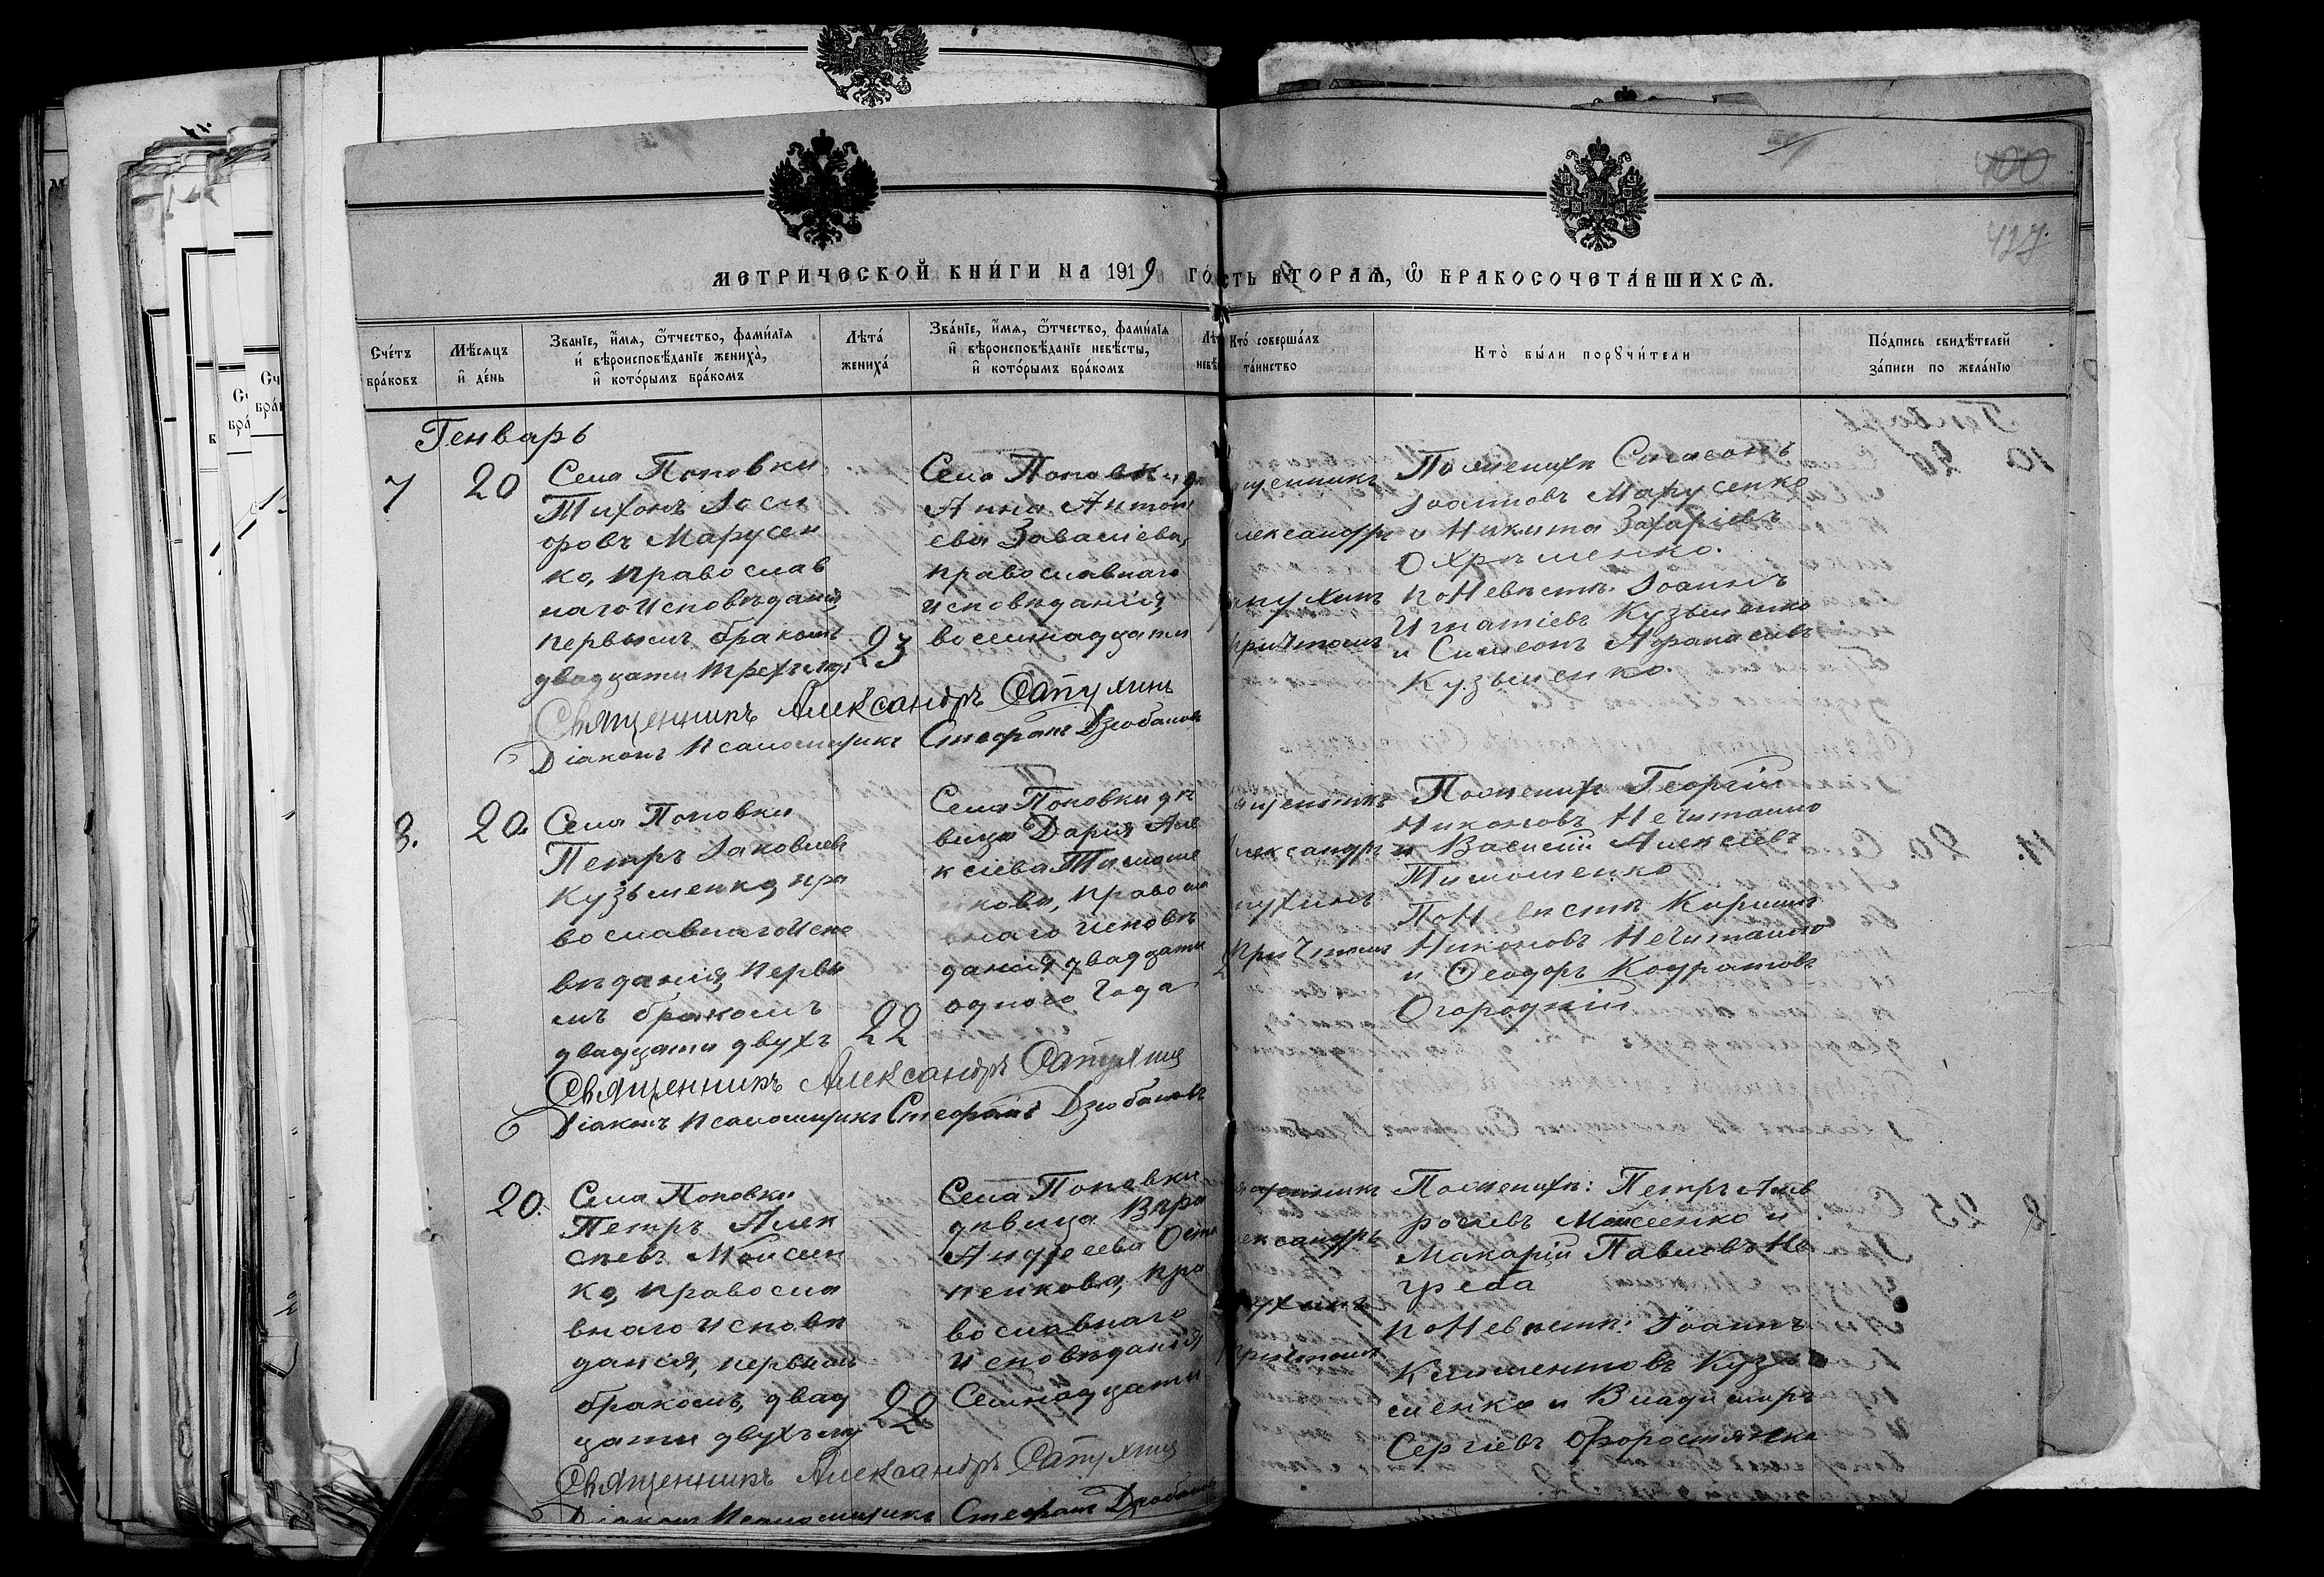 400
427
МЕТРИЧЕСКОЙ КНИ́ГИ НА 1919 ГО
СТЬ ВТОРАѦ, Ѿ БРАКОСОЧЕТА́ВШИХСѦ.
Сче́тъ бра́ковъ
Мѣ́сяцъ и де́нь
Зва́нїе, и́мя, ѻ́тчество, фами́лїя и вѣроисповѣ́данїе жениха̀, и кото́рымъ бра́комъ
Лѣта́ жениха́
Зва́нїе, и́мя, ѻ́тчество, фами́лїя и вѣроисповѣ́данїе невѣ́сты, и кото́рымъ бра́комъ
Кто̀ соверша́лъ та́инство
Кто̀ бы́ли порꙋчи́тели
По́дпись свидѣ́телей за́писи по жела́нїю
Генварь
7
20
Села Поповки
Тихонъ Iоси
фовъ Марусен
ко, православ
наго исповѣданія
первымъ бракомъ
двадцати трехъ
23
Села Поповки
Анна Антоні
ева
православнаго
исповѣданія
восемнадцати
щенникъ
лександръ
пухинъ
причтомъ
По женихѣ
Iоанновъ Марусенко
и Никита Захаріевъ
Охрѣменко.
по Невѣстѣ. Iоаннъ
Игнатіевъ Кузьменко
и Симеонъ Афанасіевъ
Кузьменко.
Священникъ Александръ Сапухинъ
Діаконъ Псаломщикъ Стефанъ Дзюбановъ
8.
20.
Села Поповки
Петръ Iаковлевъ
Кузьменко, пра
вославнаго испо
вѣданія, первы
мъ бракомъ
двадцати двухъ
22
Села Поповки дѣ
вица Дарія Але
ксіева Тимоше
нкова, правосла
внаго исповѣ
данія двадцати
одного года
щенникъ
лександръ
пухинъ
причтомъ
По женихѣ Георгій
Никоновъ Нечитайло
и Василій Алексіевъ
Тимошенко
По Невѣстѣ Кириллъ
Никоновъ Нечитайло
и Ѳеодоръ Кодратовъ
Огородній
Священникъ Александръ Сапухинъ
Діаконъ Псаломщикъ Стефанъ Дзюбановъ
20.
Села Поповки
Петръ Алек
сѣевъ Моисеен
ко, правосла
внаго исповѣ
данія, первымъ
бракомъ, двад
цати двухъ
22
Села Поповки
дѣвица Вѣра
Андреева Оста
пенкова, пра
вославнаго
исповѣданія
Семнадцати
щенникъ
ександръ
пухинъ
причтомъ
По женихѣ: Петръ Амв
росіевъ Моисеенко и
Макарій Павловъ Не
греба
по Невѣстѣ: Iоаннъ
Климентовъ Кузь
менко и Владимиръ
Сергіевъ Форостянка
Священникъ Александръ Сапухинъ
Діаконъ Псаломщикъ Стефанъ Дзюбановъ